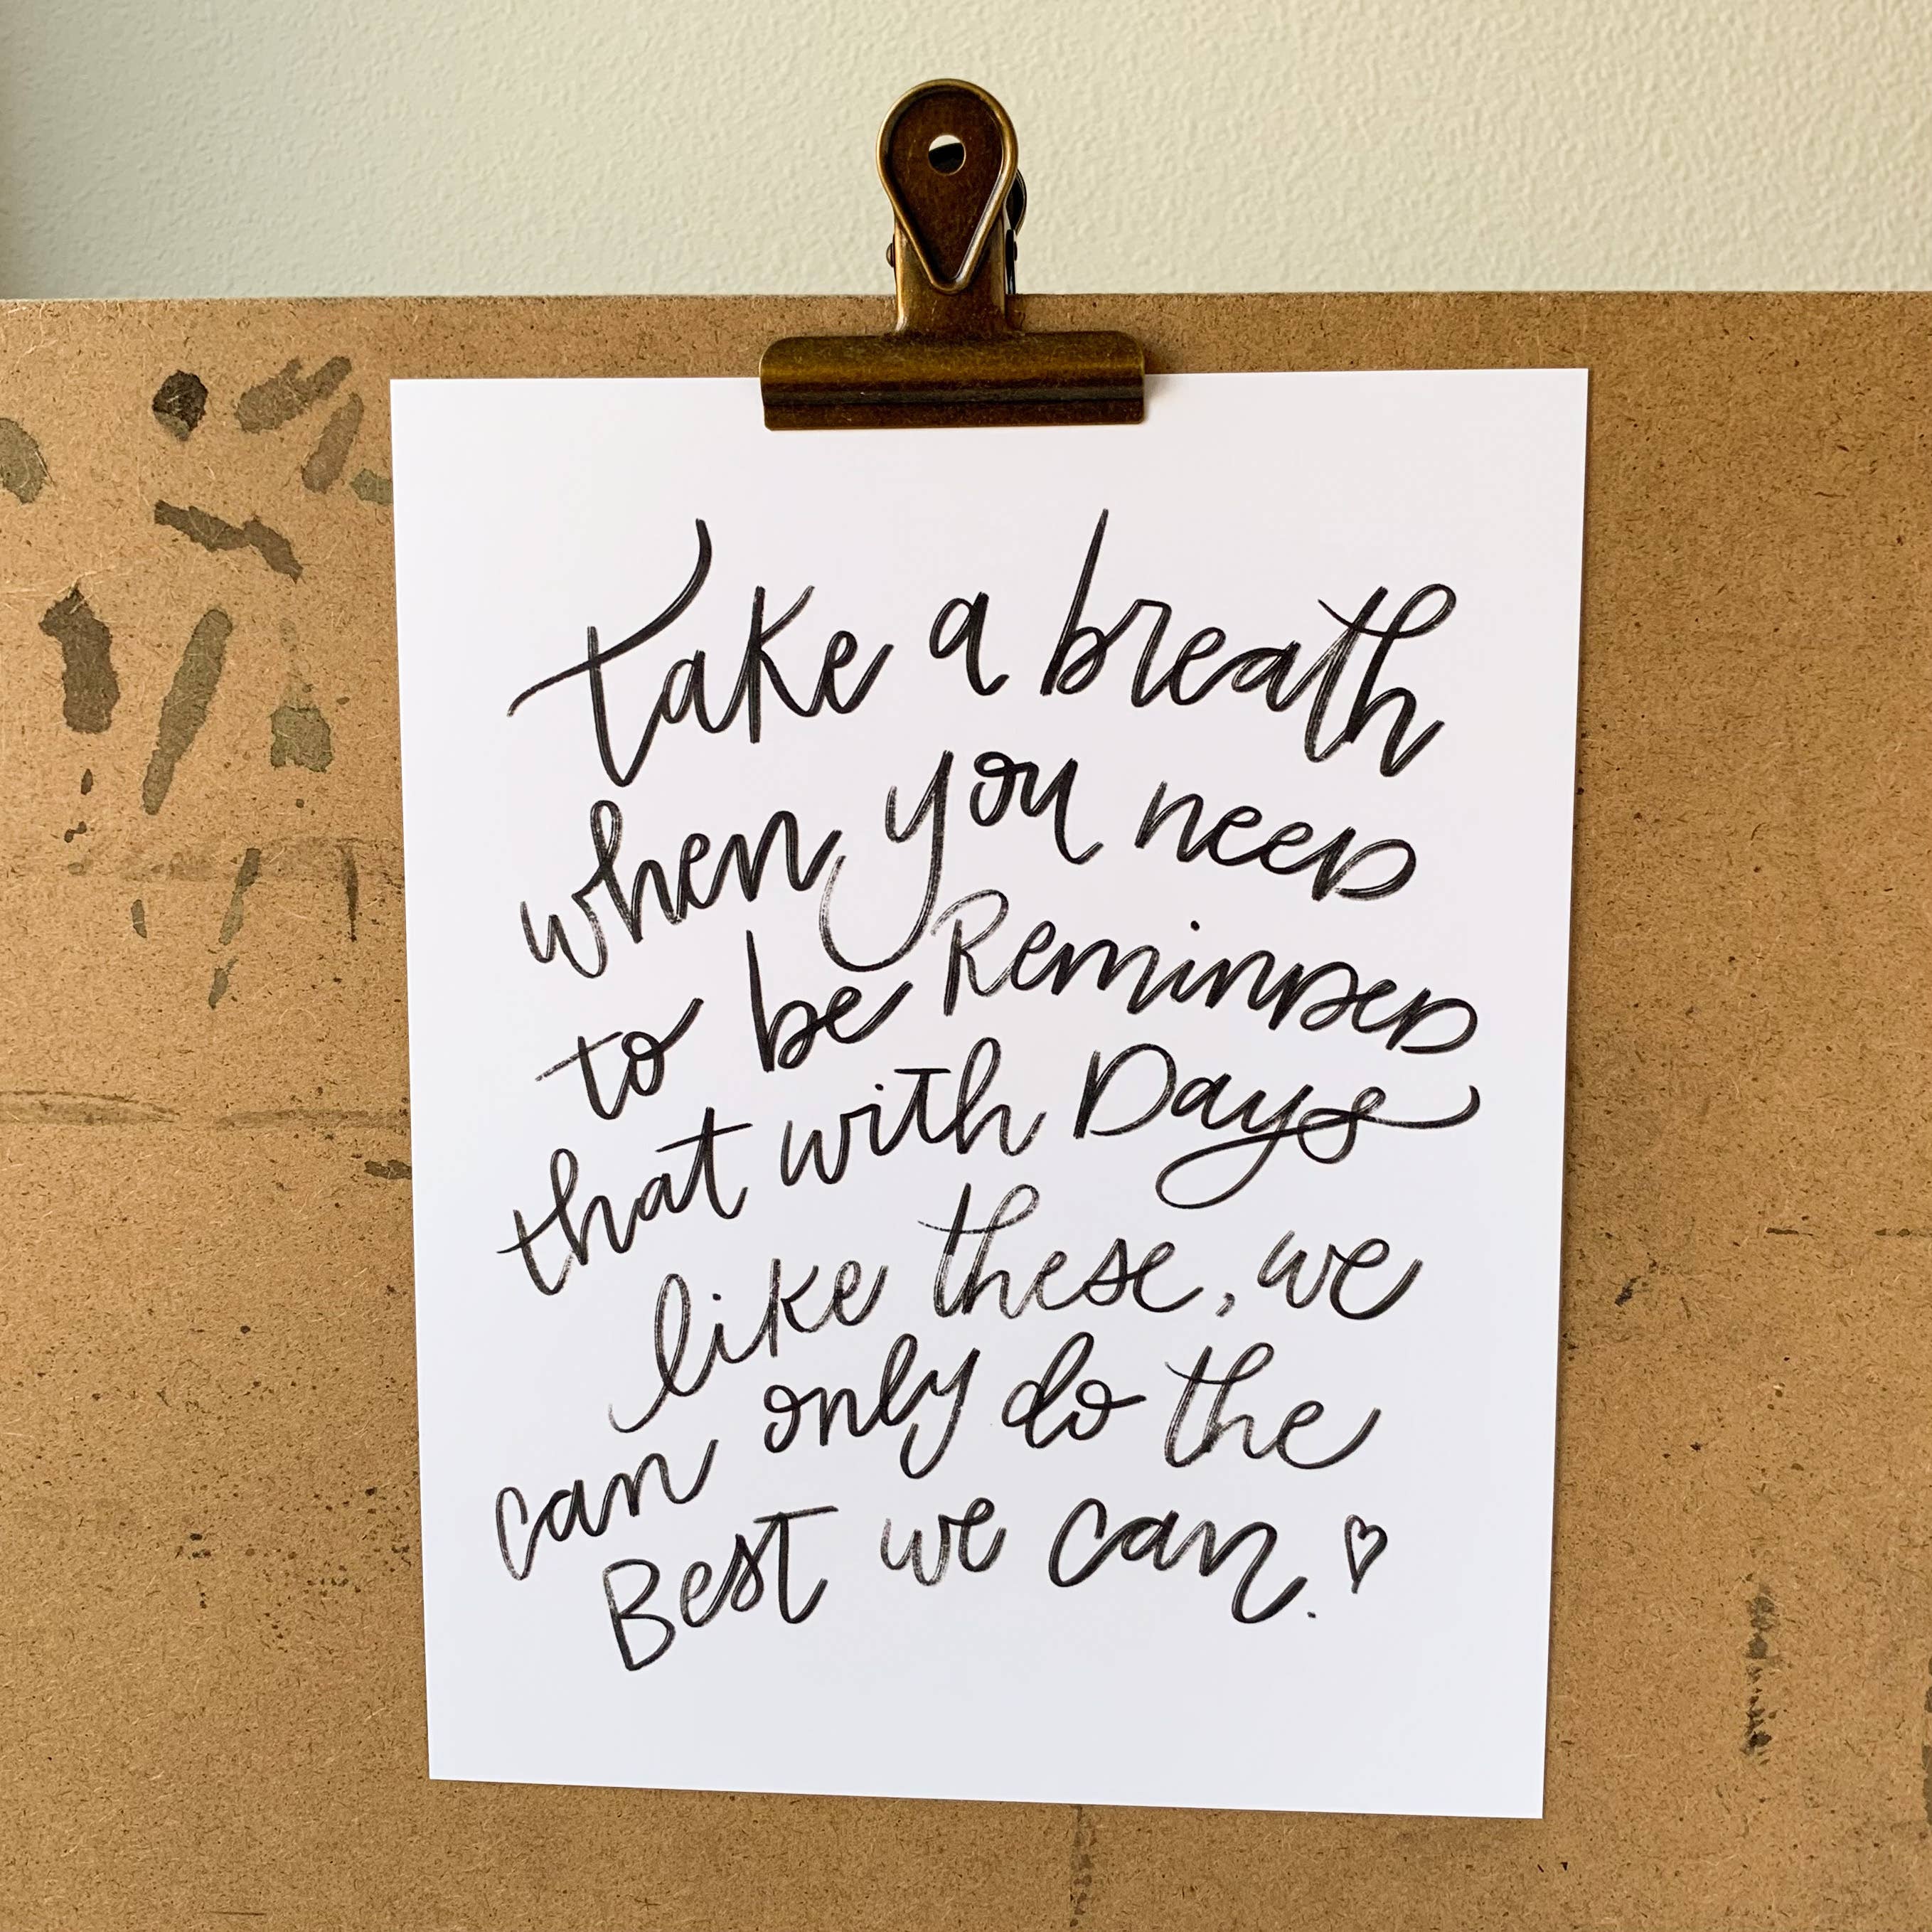 take a breath
when you need
to be Reminded
that with Days
like these, we
can only do the
Best we can. ♡